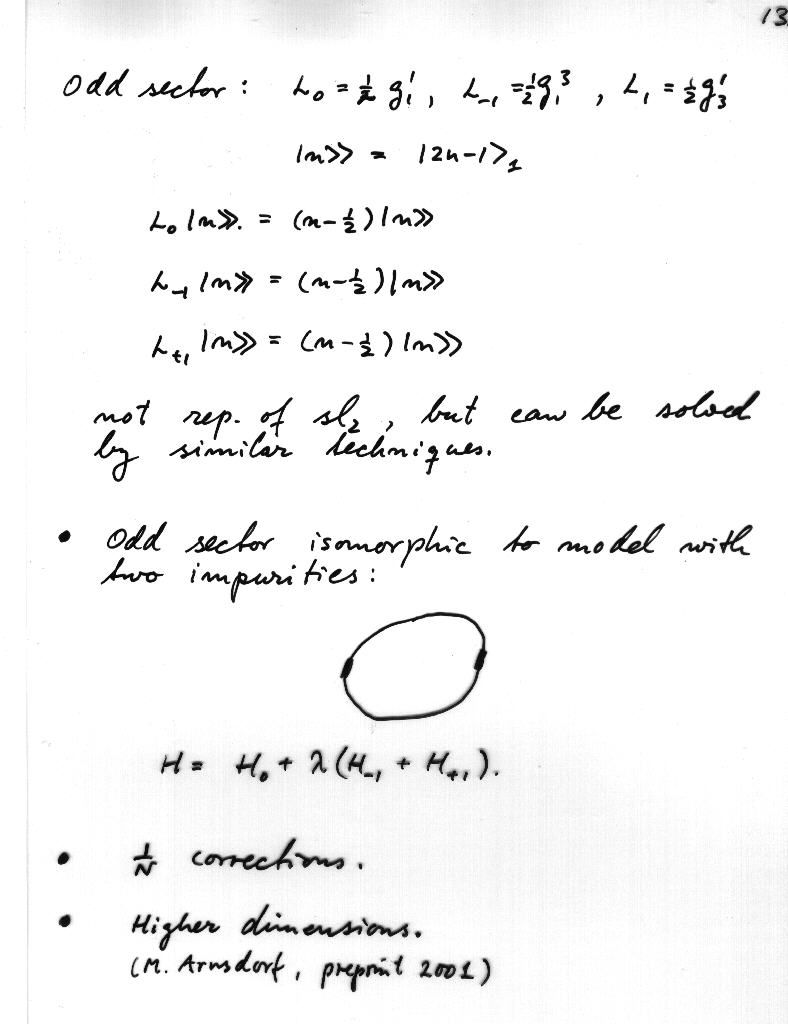 13
Odd sector : L₀ = ½ g¹₁ , L₋₁ = ½ g₁³ , L₁ = ½ g₃¹
|n⟩⟩ = |2n-1⟩₁
L₀ |n⟩⟩. = (n-½) |n⟩⟩
L₋₁ |n⟩⟩ = (n-½) |n⟩⟩
L₊₁ |n⟩⟩ = (n-½) |n⟩⟩
not rep. of sl₂ , but can be solved
by similar techniques.
• Odd sector isomorphic to model with
two impurities :
H = H₀ + λ (H₋₁ + H₊₁).
• 1/N corrections.
• Higher dimensions.
(M. Arnsdorf, preprint 2001)